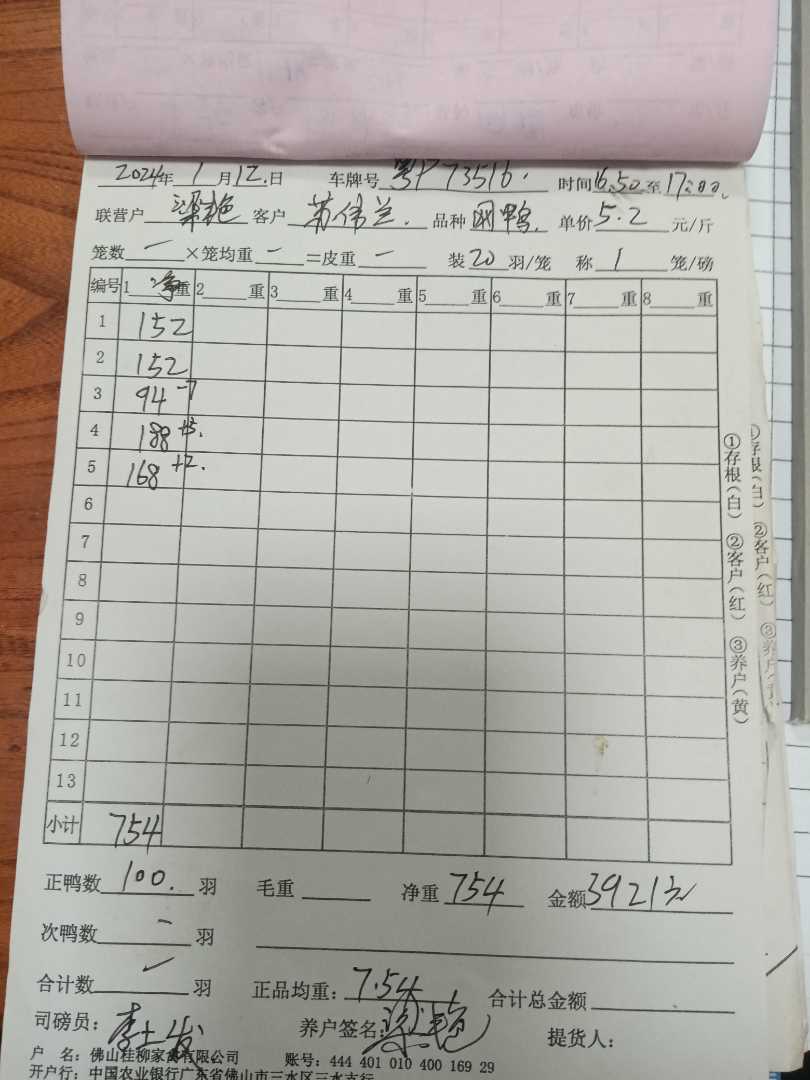 2024年 1 月 12.日 车牌号 粤P 73516. 时间 16.50 至 17:00.
联营户 梁艳 客户 苏伟兰. 品种 网鸭. 单价 5.2 元/斤
笼数 一 ×笼均重 一 =皮重 一 装 20 羽/笼 称 1 笼/磅
编号 1 净重 2 重 3 重 4 重 5 重 6 重 7 重 8 重
1 152
2 152
3 94 -7
4 188 +3.
5 168 +2.
6
7
8
9
10
11
12
13
小计 754
正鸭数 100. 羽 毛重 净重 754 金额 3921元
次鸭数 一 羽
合计数 ✓ 羽 正品均重: 7.54 合计总金额
司磅员: 李士发 养户签名: 梁艳 提货人:
户 名: 佛山桂柳家禽有限公司 账号: 444 401 010 400 169 29
开户行: 中国农业银行广东省佛山市三水区三水支行
①存根(白) ②客户(红) ③养户(黄)
①存根(白) ②客户(红) ③养户(黄)